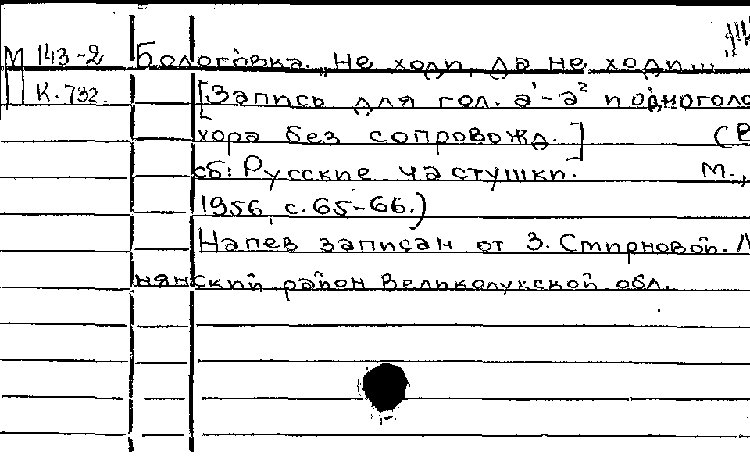 М 143-2 Бологовка. „Не ходи, да не ходи...
К-732 [Запись для гол. а¹-а² и одноголо
хора без сопровожд.] (В
сб: Русские частушки. М.,
1956, с. 65-66.)
Напев записан от З. Смирновой.
нянский район Великолукской обл.